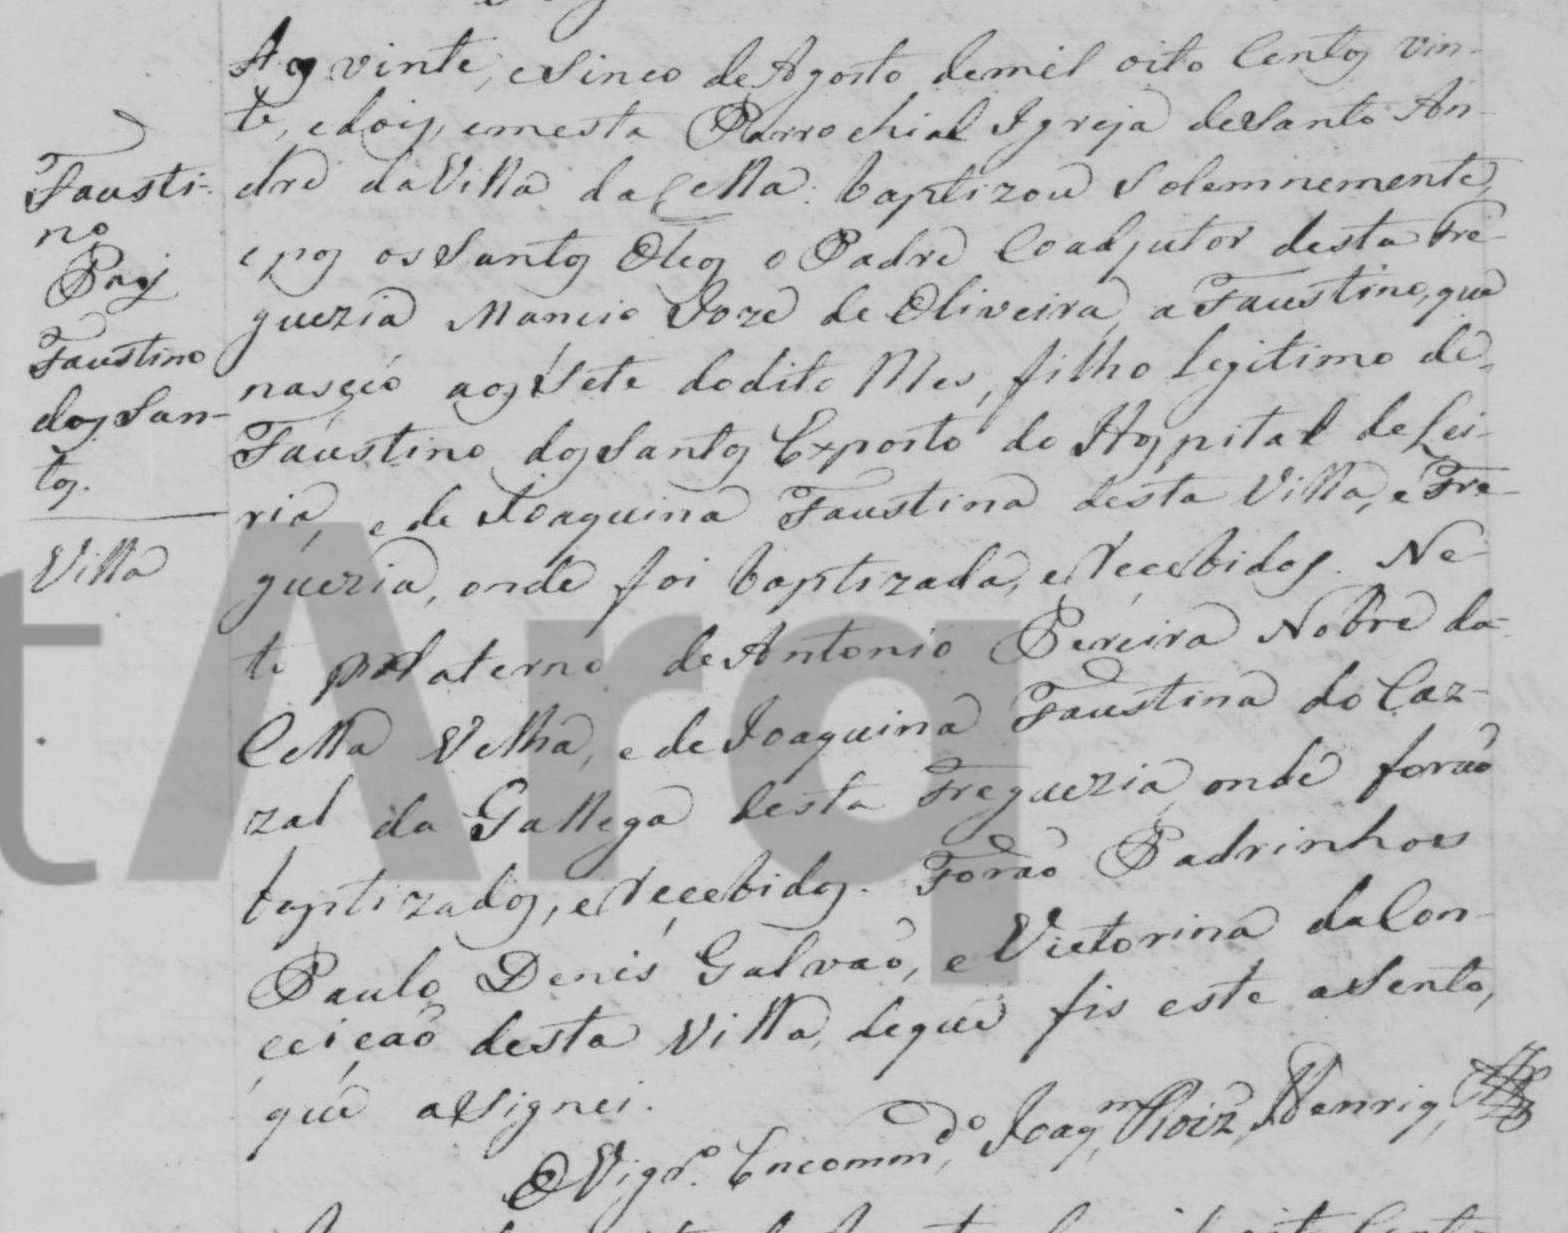 Fausti-
no
Pay
Faustino
dos San-
tos.
Villa
Aos vinte, e sinco de Agosto de mil oito Centos vin-
te, e dois, em esta Parrochial Igreja de Santo An-
dre da Villa da Cella: baptizou Solemnemente,
e pos os Santos Oleos o Padre Coadjutor desta Fre-
guezia Mancio Joze de Oliveira, a Faustino, que
nasçeo aos Sete do dito Mes, filho legitimo de
Faustino dos Santos Exposto do Hospital de Lei-
ria, e de Joaquina Faustina desta Villa, e Fre-
guezia, onde foi baptizada, e Reçebidos. Ne-
to Materno de Antonio Pereira Nobre da
Cella Velha, e de Joaquina Faustina do Caz-
zal da Gallega desta Freguezia, onde forão
baptizados, e Reçebidos. Forão Padrinhos
Paulo Denis Galvão, e Victorina da Con-
çeição desta Villa, de que fis este aSento,
que aSignei.
O Vigr.º Encomm.do Joaq.m Roiz Henriq
tArq